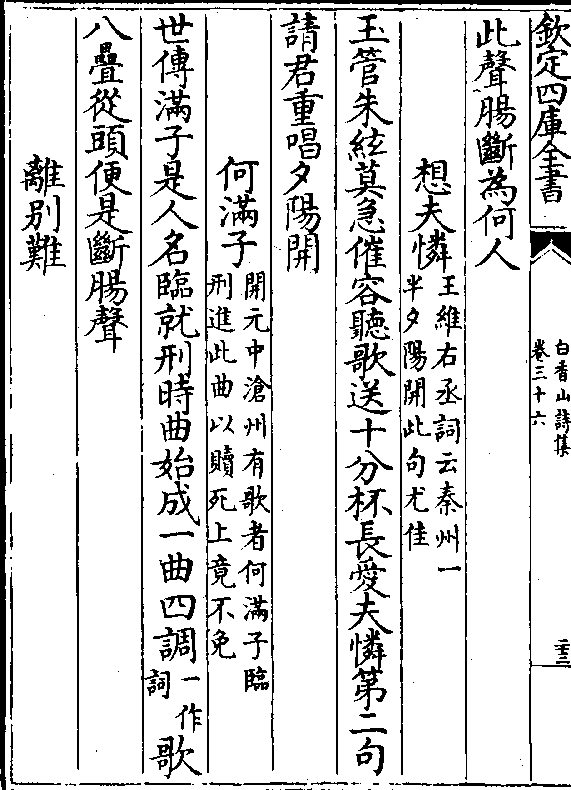 欽定四庫全書
白香山詩集
卷三十六
二十三
此聲腸斷為何人
想夫憐
王維右丞詞云秦州一
半夕陽開此句尤佳
玉管朱絃莫急催容聽歌送十分杯長愛夫憐第二句
請君重唱夕陽開
何滿子
開元中滄州有歌者何滿子臨
刑進此曲以贖死上竟不免
世傳滿子是人名臨就刑時曲始成一曲四調一作詞歌
八疊從頭便是斷腸聲
離別難